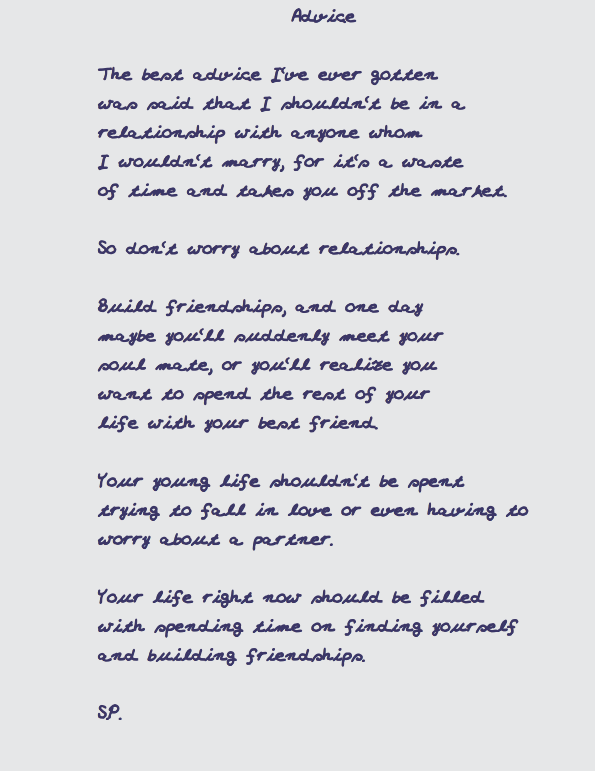 Advice
The best advice I've ever gotten
was said that I shouldn't be in a
relationship with anyone whom
I wouldn't marry, for it's a waste
of time and takes you off the market.
So don't worry about relationships.
Build friendships, and one day
maybe you'll suddenly meet your
soul mate, or you'll realize you
want to spend the rest of your
life with your best friend.
Your young life shouldn't be spent
trying to fall in love or even having to
worry about a partner.
Your life right now should be filled
with spending time on finding yourself
and building friendships.
SP.